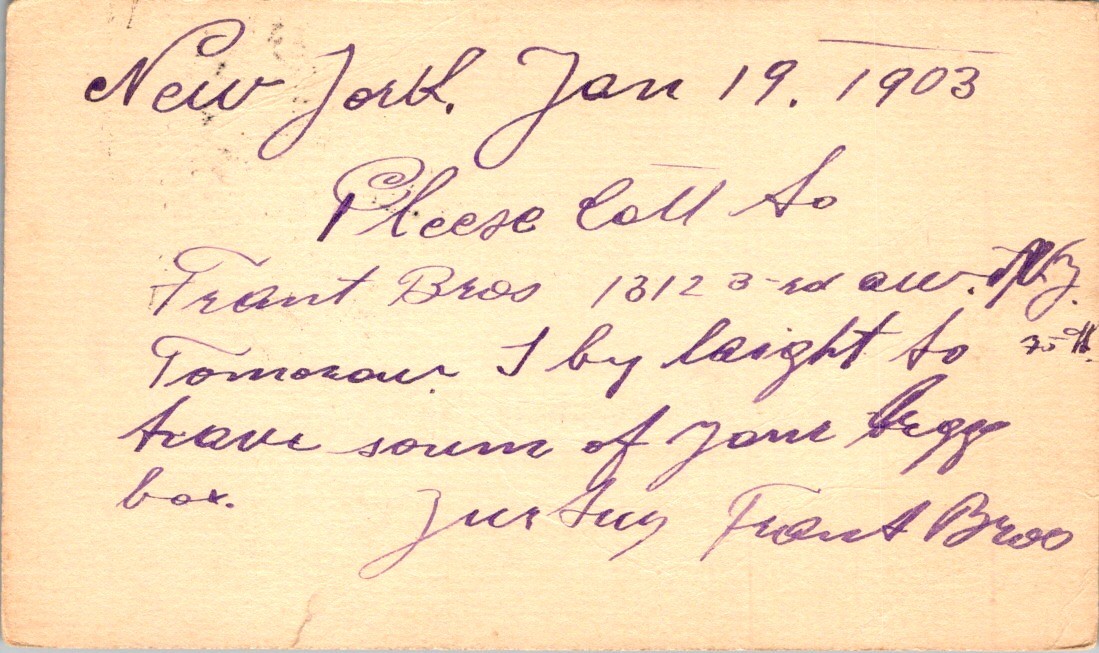 New York. Jan 19. 1903
Pleese Call to
Frant Bros 1312 3-rd aw. N.Y.
Tomorow. I by laight to 75 th.
trave soum of your
box. Frant Bros